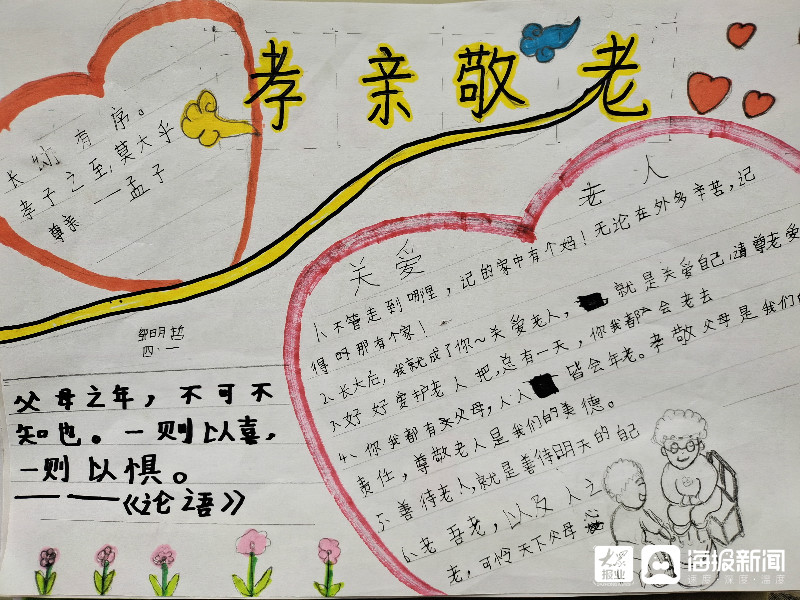 孝亲敬老
长幼有序。
孝子之至,莫大乎
尊亲 —孟子
邹明哲
四·一
父母之年，不可不
知也。一则以喜，
一则以惧。
———《论语》
关爱
老人
1、不管走到哪里，记的家中有个妈！无论在外多辛苦，记
得呀那有个家！
2、长大后，我就成了你~关爱老人，就是关爱自己，请尊老爱
3、好好爱护老人把，总有一天，你我都会老去
4、你我都有父母，人人皆会年老。孝敬父母是我们的
责任，尊敬老人是我们的美德。
5、善待老人，就是善待明天的自己
6、老吾老，以及人之
老，可怜天下父母心
大众报业
海报新闻
速度·深度·温度